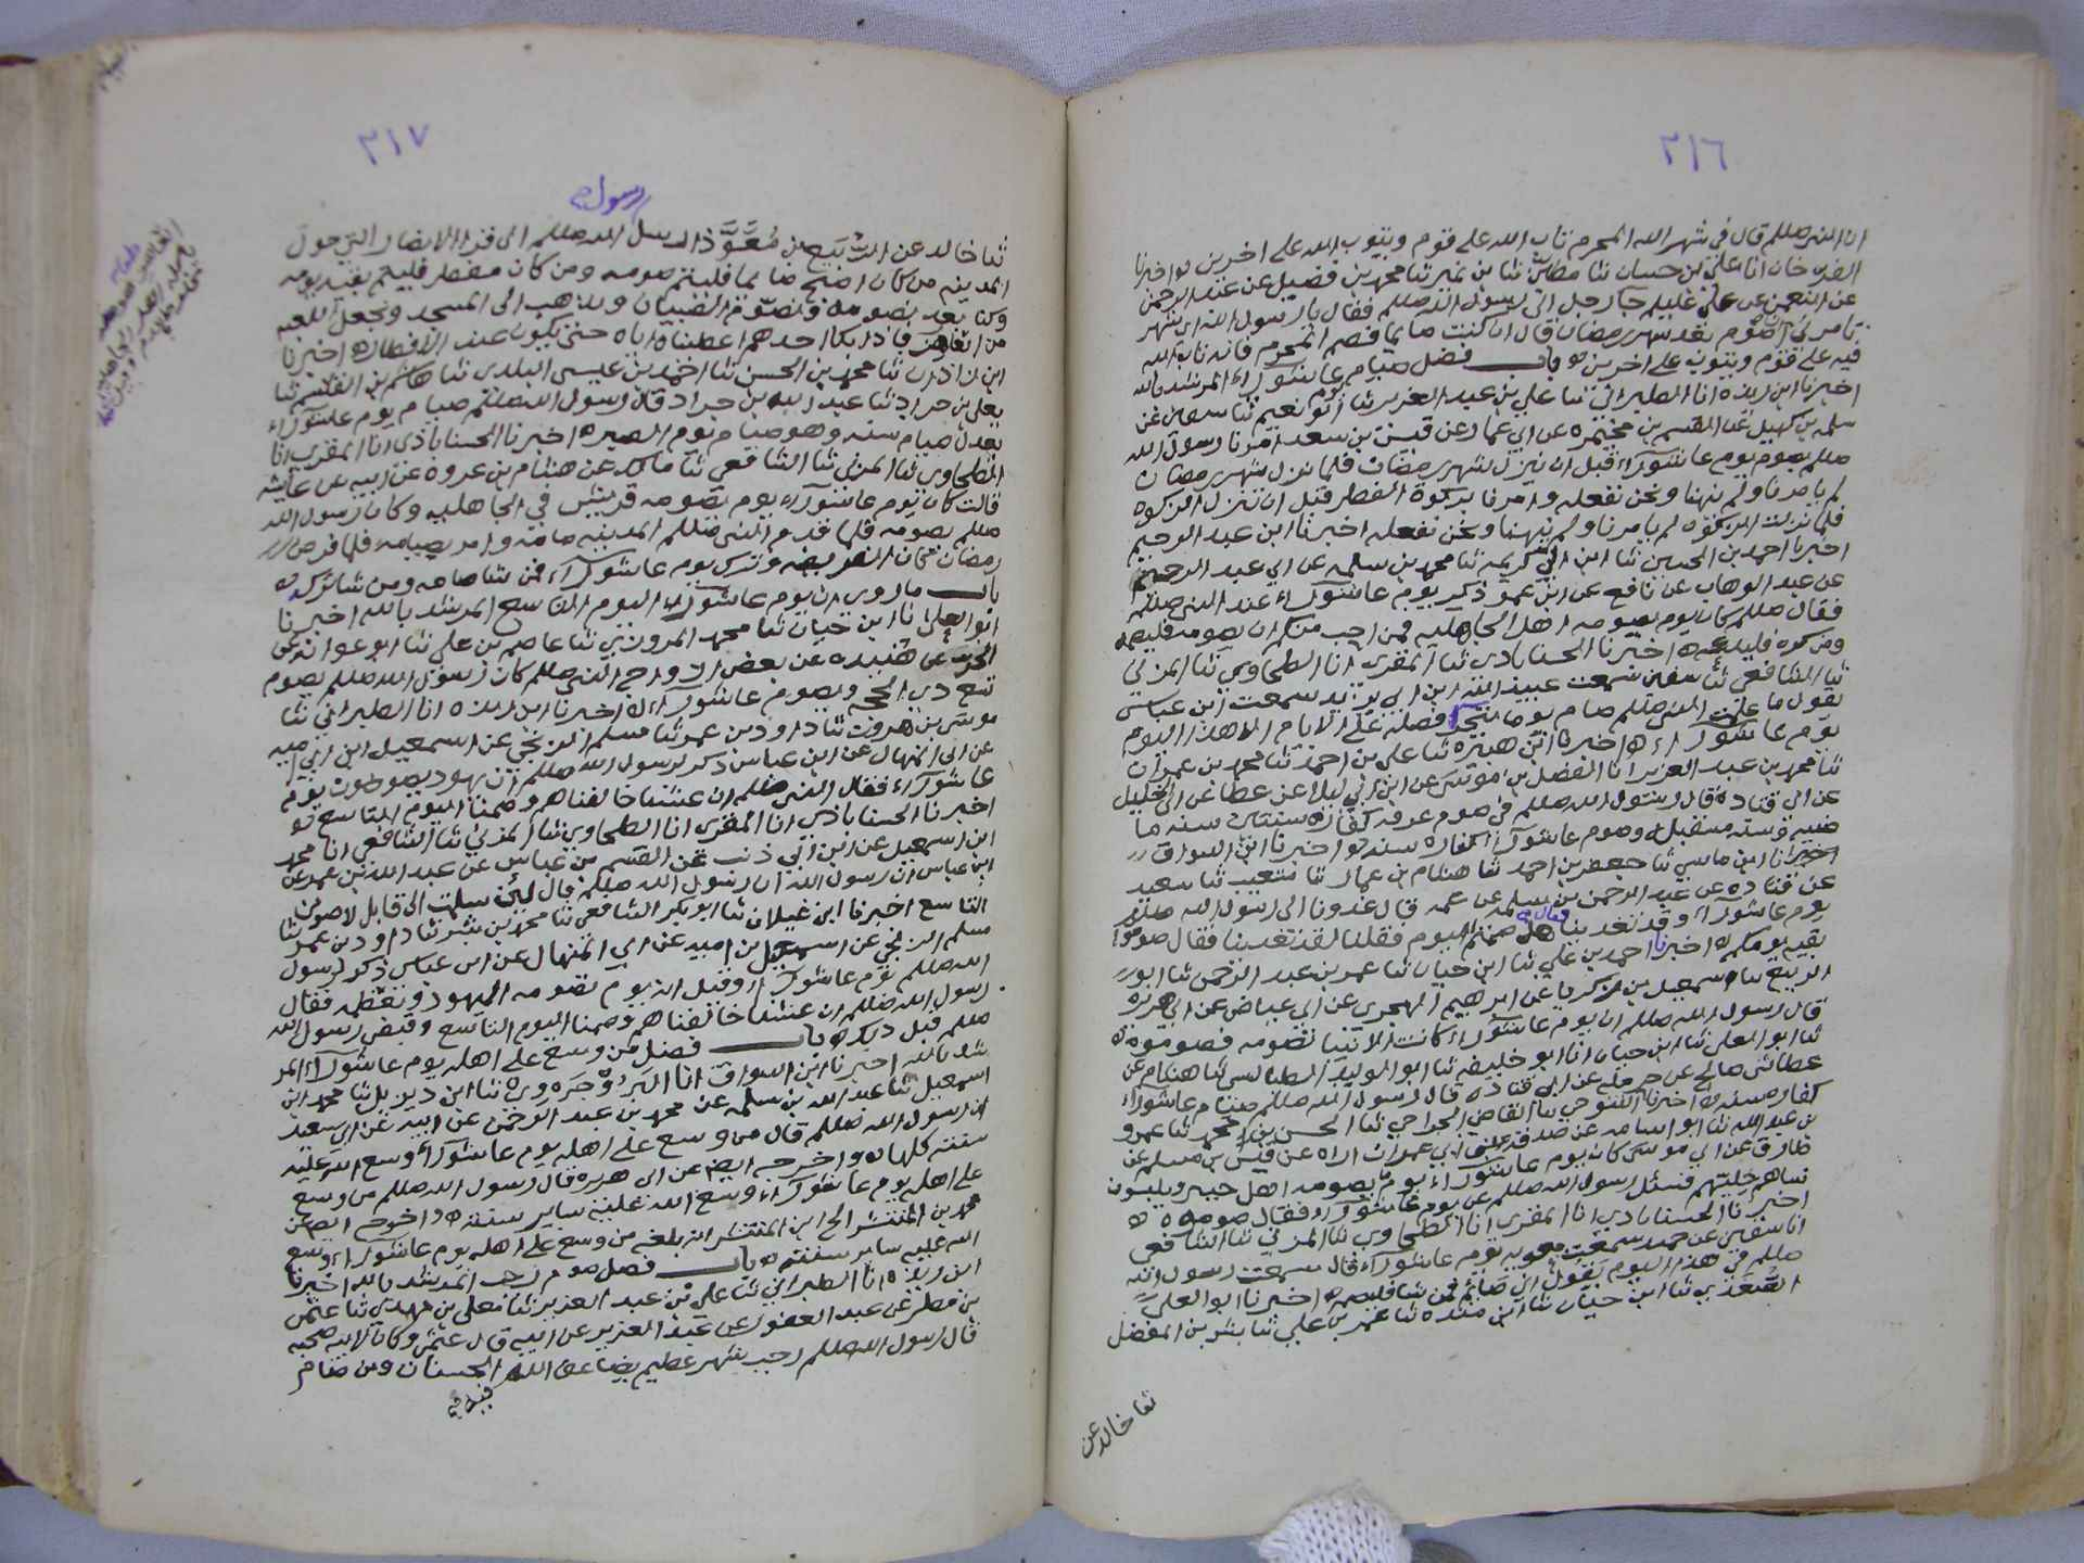 ٢١٦
ان النبي صللم قال في شهر الله المحرم تاب الله على قوم ويتوب الله على اخرين واخبرنا
خان انا علي بن حسان ثنا مطين ثنا بن نمير ثنا محمد بن فضيل عن عبد الرحمن
عن النعمن عن علي عليلم جا رجل الى رسول الله صللم فقال يا رسول الله اي شهر
تامرني الصوم بعد شهر رمضان قال ان كنت صايما فصم المحرم فانه تاب الله
فيه على قوم ويتوب على اخرين باب فضل صيام يوم عاشوراء المرشد بالله
اخبرنا ابن ريذه انا الطبراني ثنا علي بن عبد العزيز ثنا ابو نعيم ثنا سفين عن
سلمه بن كهيل عن القسم بن مخيمره عن ابي عمار عن قيس بن سعد امرنا رسول الله
صللم بصوم يوم عاشوراء قبل ان ينزل شهر رمضان فلما نزل شهر رمضان
لم يامرنا ولم ينهنا ونحن نفعله وامرنا بزكوة الفطر قبل ان تنزل الزكوه
فلما نزلت الزكوه لم يامرنا ولم ينهنا ونحن نفعله اخبرنا ابن عبد الرحيم
اخبرنا احمد بن الحسين ثنا ابن ابي كريمه ثنا محمد بن سلمه عن ابي عبد الرحيم
عن عبد الوهاب عن نافع عن ابن عمر ذكر يوم عاشوراء عند النبي صللم
فقال صللم كان يوم يصومه اهل الجاهليه فمن احب منكم ان يصومه فليصمه
ومن كره فليدعه اخبرنا الحسناباذي ثنا المقرى انا الطحاوي ثنا المزني
ثنا الشافعي ثنا سفين سمعت عبيد الله ابن ابي يزيد سمعت ابن عباس
يقول ما علمت النبي صللم صام يوما يتحرا فضله على الايام الا هذا اليوم
يوم عاشوراء اخبرنا ابن هبيره ثنا علي بن احمد ثنا محمد بن عمران
ثنا محمد بن عبد العزيز انا الفضل بن موسى عن ابن ابي ليلا عن عطا عن ابي الخليل
عن ابي قتاده قال رسول الله صللم في صوم عرفه كفاره سنتين سنه ما
ضيه وسنه مستقبله وصوم عاشوراء كفاره سنه اخبرنا ابن السواق
اخبرنا ابن ماسي ثنا جعفر بن احمد ثنا هشام بن عمار ثنا شعيب ثنا سعيد
عن قتاده عن عبد الرحمن بن سلمه عن عمه قال غدونا الى رسول الله صللم
يوم عاشوراء وقد تغدينا فقال هل صمتم اليوم فقلنا لقد تغدينا فقال صوموا
بقيه يومكم اخبرنا احمد بن علي ثنا ابن حيان ثنا عمر بن عبد الرحمن ثنا ابو
الربيع ثنا اسمعيل بن زكريا عن ابرهيم الهجري عن ابي عياض عن ابي هريره
قال رسول الله صللم ان يوم عاشوراء كانت الانبيا تصومه فصوموه
ثنا ابو العلى ثنا ابن حيان انا ابو خليفه ثنا ابو الوليد الطيالسي ثنا همام عن
عطا ثنى صالح عن حرمله عن ابي قتاده قال رسول الله صللم صيام عاشوراء
كفاره سنه اخبرنا التنوخي ثنا القاضي الجراحي ثنا الحسن بن محمد ثنا عمرو
بن عبد الله ثنا ابو اسامه عن صدقه بن ابي عمران اراه عن قيس بن مسلم عن
طارق عن ابي موسى كان يوم عاشوراء يوما يصومه اهل خيبر ويلبسون
نساهم حليتهم فسئل رسول الله صللم عن يوم عاشوراء فقال صوموه
اخبرنا الحسناباذي انا المقرى انا الطحاوي ثنا المزني ثنا الشافعي
انا سفين عن حميد سمعت معويه يوم عاشوراء قال سمعت رسول الله
صللم في هذا اليوم يقول اني صايم فمن شا فليصمه اخبرنا ابو العلى
ثنا ابن حيان ثنا ابن منده ثنا عمر بن علي ثنا بشر بن المفضل
ثنا خالد عن
٢١٧
رسول
ثنا خالد عن الربيع بن معوذ ارسل الله صللم الى قرى الانصار التي حول
المدينه من كان اصبح صايما فليتم صومه ومن كان مفطر فليتم بقيه يومه
وكنا بعد نصومه ونصوم الصبيان ونذهب الى المسجد ونجعل اللعبه
من العهن فاذا بكا احدهم اعطيناه اياه حتى يكون عند الافطار اخبرنا
ابن شاذان ثنا محمد بن الحسن ثنا احمد بن عيسى البلدي ثنا هاشم بن القسم ثنا
يعلى بن جراد ثنا عبد الله بن جراد قال رسول الله صللم صيام يوم عاشوراء
يعدل صيام سنه وهو صيام يوم الصبره اخبرنا الحسناباذي انا المقري انا
الطحاوي ثنا المزني ثنا الشافعي ثنا مالك عن هشام بن عروه عن ابيه عن عايشه
قالت كان يوم عاشوراء يوم تصومه قريش في الجاهليه وكان رسول الله
صللم يصومه فلما قدم النبي صللم المدينه صامه وامر بصيامه فلما فرض
رمضان كان الفريضه وترك يوم عاشوراء فمن شا صامه ومن شا تركه
باب ما روي ان يوم عاشوراء اليوم التاسع المرشد بالله اخبرنا
ابو العلى انا ابن حيان ثنا محمد المروزي ثنا عاصم بن علي ثنا ابو عوانه عن
الحر عن هنيده عن بعض ازواج النبي صللم كان رسول الله صللم يصوم
تسع ذي الحجه ويصوم عاشوراء اخبرنا ابن ريذه انا الطبراني ثنا
موسى بن هرون ثنا داود بن عمر ثنا مسلم الزنجي عن اسمعيل ابن اميه
عن ابي المنهال عن ابن عباس ذكر لرسول الله صللم ان يهود يصومون يوم
عاشوراء فقال النبي صللم ان عشنا خالفناهم وصمنا اليوم التاسع
اخبرنا الحسناباذي انا المقرى انا الطحاوي ثنا المزني ثنا الشافعي انا محمد
ابن اسمعيل عن ابن ابي ذئب عن القسم بن عباس عن عبد الله بن عمير عن
ابن عباس ان رسول الله صللم قال لئن سلمت الى قابل لاصومن
التاسع اخبرنا ابن غيلان ثنا ابو بكر الشافعي ثنا محمد بن بشر ثنا داود بن عمر ثنا
مسلم الزنجي عن اسمعيل بن اميه عن ابي المنهال عن ابن عباس ذكر لرسول
الله صللم يوم عاشوراء وقيل انه يوم تصومه اليهود وتعظمه فقال
رسول الله صللم ان عشنا خالفناهم وصمنا اليوم التاسع وقبض رسول الله
صللم قبل ذلك باب فضل من وسع على اهله يوم عاشوراء المر
شد بالله اخبرنا ابن السواق انا ثنا ابن دينيل ثنا محمد ابن
اسمعيل ثنا عبد الله بن سلمه عن محمد بن عبد الرحمن عن ابيه عن ابي سعيد
ان رسول الله صللم قال من وسع على اهله يوم عاشوراء وسع الله عليه
سنته كلها واخرج ايضا عن ابي هريره قال رسول الله صللم من وسع
على اهله يوم عاشوراء وسع الله عليه ساير سنته واخرج ايضا عن
محمد بن المنتشر الى ابن المنتشر انه بلغه من وسع على اهله يوم عاشوراء وسع
الله عليه ساير سنته باب فضل صوم رجب المرشد بالله اخبرنا
ابن ريذه انا الطبراني ثنا علي بن عبد العزيز ثنا معلى بن مهدي ثنا عثمن
بن مطر عن عبد الغفور عن عبد العزيز عن ابيه قال عثمن وكان لابيه صحبه
قال رسول الله صللم رجب شهر عظيم يضاعف الله الحسنات ومن صام